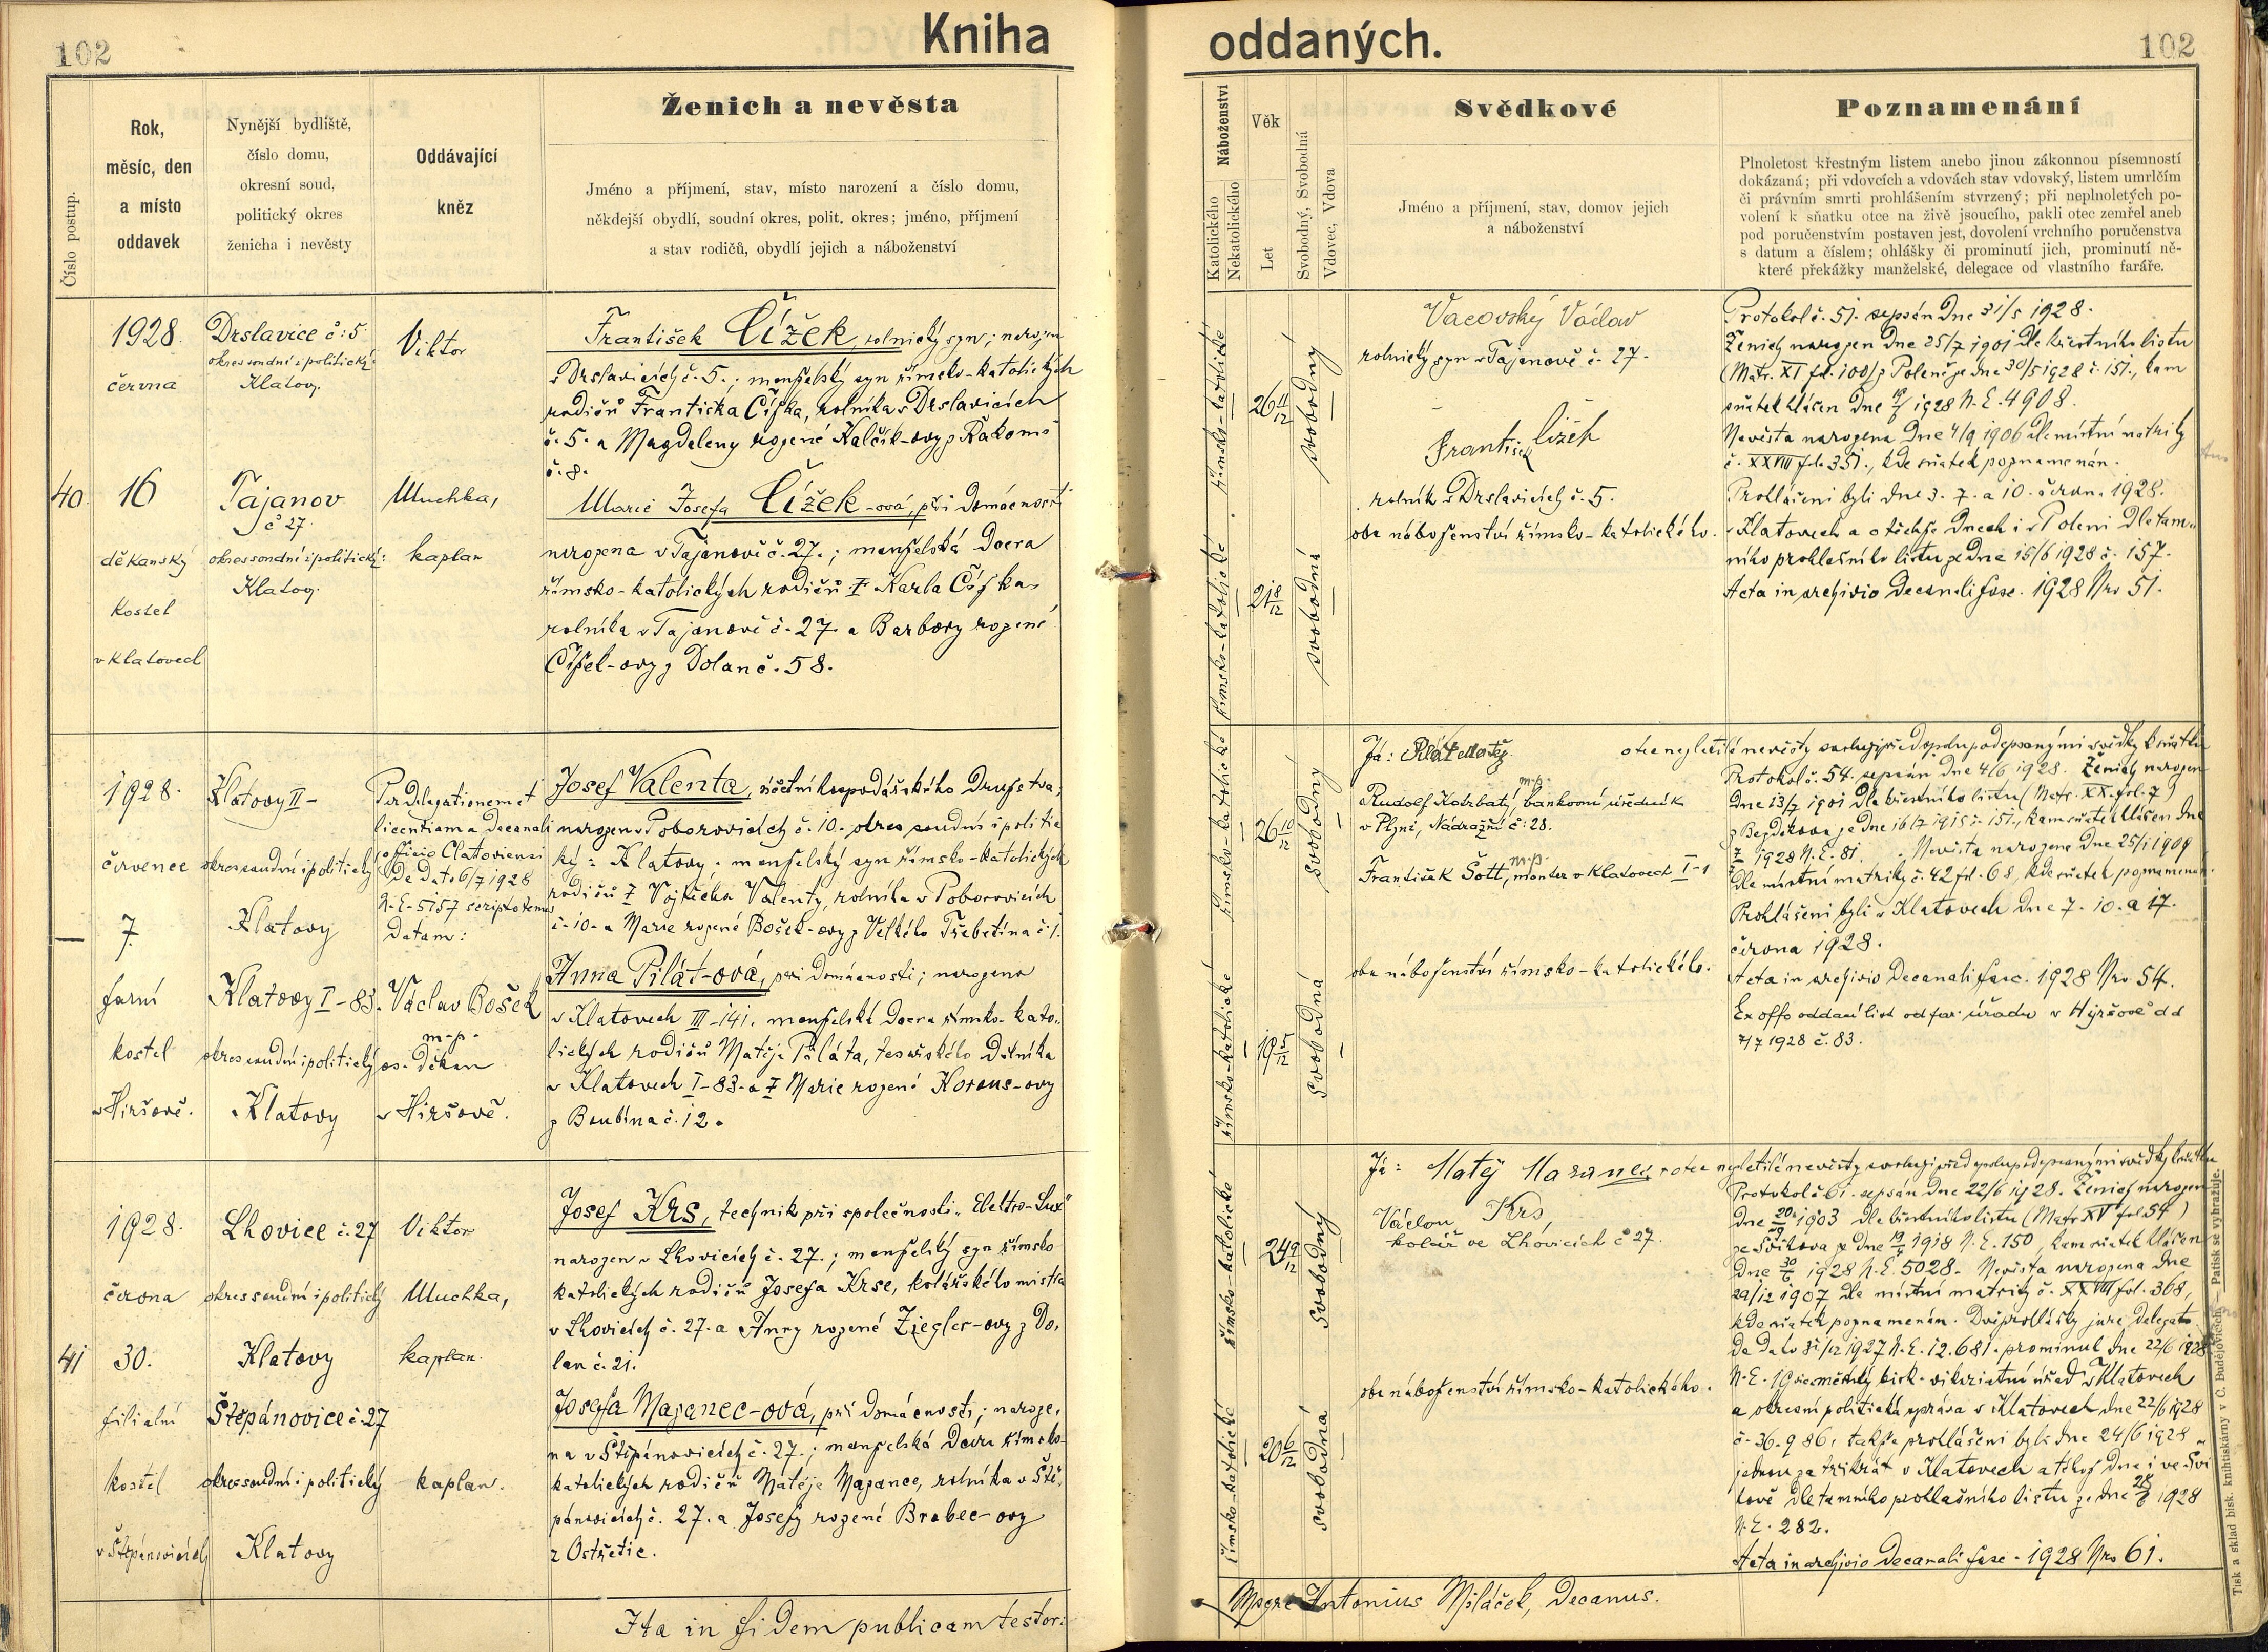 102
Kniha
Číslo postup.
Rok,
měsíc, den
a místo
oddavek
Nynější bydliště,
číslo domu,
okresní soud,
politický okres
ženicha i nevěsty
Oddávající
kněz
Ženich a nevěsta
Jméno a příjmení, stav, místo narození a číslo domu,
někdejší obydlí, soudní okres, polit. okres; jméno, příjmení
a stav rodičů, obydlí jejich a náboženství
40.
1928.
června
16
děkanský
kostel
v Klatovech
Drslavice č: 5.
okres soudní i politický:
Klatovy.
Tajanov
č 27.
okres soudní i politický:
Klatovy.
Viktor
Muchka,
kaplan
František Čížek, rolnický syn; narozen
v Drslavicích č. 5.; manželský syn římsko-katolických
rodičů Františka Čížka, rolníka v Drslavicích
č. 5. a Magdaleny rozené Kalčík-ovy z Rakoms
č. 8.
Marie Josefa Čížek-ová, při domácnosti
narozena v Tajanově č. 27.; manželská dcera
římsko-katolických rodičů † Karla Čížka,
rolníka v Tajanově č. 27. a Barbory rozené
Čížek-ovy z Dolan č. 58.
—
1928.
července
7.
farní
kostel
v Hiršově.
Klatovy II -
okres soudní i politický
Klatovy
Klatovy I - 83.
okres soudní i politický
Klatovy
Per delegationem et
licentiam a Decanali
officio Clatoviensi
de dato 6/7 1928
N. E. 5157 scripto
datam:
Václav Bošek
m.p.
os. děkan
v Hiršově.
Josef Valenta, účetní hospodářského družstva,
narozen v Poborovicích č. 10. okres soudní i politic
ký: Klatovy; manželský syn římsko-katolických
rodičů † Vojtěcha Valenty, rolníka v Poborovicích
č. 10. a Marie rozené Bošek-ovy z Velkého Třebetína č 1.
Anna Pilát-ová, při domácnosti; narozena
v Klatovech III - 141. manželská dcera římsko-kato-
lických rodičů Matěje Piláta, tesařského dělníka
v Klatovech I - 83. a † Marie rozené Korous-ovy
z Boubína č. 12.
41
1928.
června
30.
filialní
kostel
v Štěpánovicích
Lhovice č. 27
okres soudní i politický
Klatovy
Štěpánovice č. 27
okres soudní i politický
Klatovy
Viktor
Muchka,
kaplan.
kaplan.
Josef Krs, technik při společnosti „Elektro-Lux"
narozen v Lhovicích č. 27.; manželský syn římsko
katolických rodičů Josefa Krse, kolářského mistra
v Lhovicích č. 27. a Anny rozené Ziegler-ovy z Do-
lan č. 21.
Josefa Mazanec-ová, při domácnosti; naroze-
na v Štěpánovicích č. 27.; manželská dcera římsko-
katolických rodičů Matěje Mazance, rolníka v Ště-
pánovicích č. 27. a Josefy rozené Brabec-ovy
z Ostřetic.
Ita in fidem publicam testor:
oddaných.
102
Náboženství
Katolického
Nekatolického
Věk
Let
Svobodný, Svobodná
Vdovec, Vdova
Svědkové
Jméno a příjmení, stav, domov jejich
a náboženství
Poznamenání
Plnoletost křestným listem anebo jinou zákonnou písemností
dokázaná; při vdovcích a vdovách stav vdovský, listem umrlčím
či právním smrti prohlášením stvrzený; při neplnoletých po-
volení k sňatku otce na živě jsoucího, pakli otec zemřel aneb
pod poručenstvím postaven jest, dovolení vrchního poručenstva
s datum a číslem; ohlášky či prominutí jich, prominutí ně-
které překážky manželské, delegace od vlastního faráře.
římsko-katolické
26 11/12
svobodný
římsko-katolické
21 8/12
svobodná
Vacovský Václav
rolnický syn v Tajanově č. 27.
František Čížek
rolník v Drslavicích č. 5.
oba náboženství římsko-katolického.
Protokol č. 51. sepsán dne 31/5 1928.
Ženich narozen dne 25/7 1901 dle křestního listu
(Matr. XI fol. 100) z Poleně ze dne 30/5 1928 č. 151., kam
sňatek hlášen dne 1928 N. E. 4908.
Nevěsta narozena dne 4/9 1906 dle místní matriky
č. XXVIII fol. 351., kde sňatek poznamenán.
Prohlášeni byli dne 3. 7. a 10. června 1928.
v Klatovech a v těchže dnech i v Poleni dle tam-
ního prohlašního listu ze dne 15/6 1928 č. 157.
Acta in archivio Decanali fasc. 1928 Nro 51.
římsko-katolické
26 10/12
svobodný
římsko-katolické
19 5/12
svobodná
Já: Pilát Matěj
otec nezletilé nevěsty svoluji před spolupodepsanými svědky k sňatku
m.p.
Rudolf Kotrbatý, bankovní úředník
v Plzni, Nádražní č: 28.
m.p.
František Šott, monter v Klatovech I - 1
oba náboženství římsko-katolického.
Protokol č. 54. sepsán dne 4/6 1928. Ženich narozen
dne 13/7 1901 dle křestního listu (Matr. XX. fol. 7)
z Bezděkova ze dne 16/7 1915 č. 151., kam sňatek hlášen dne
1928 N. E. 81. Nevěsta narozena dne 25/1 1909
dle místní matriky č. 42 fol. 68, kde sňatek poznamenán.
Prohlášeni byli v Klatovech dne 7. 10. a 17.
června 1928.
Acta in archivio Decanali fasc. 1928 Nro 54.
Ex offo oddací list od far. úřadu v Hyršově dd
7/7 1928 č. 83.
římsko-katolické
24 9/12
svobodný
římsko-katolické
20 6/12
svobodná
Já: Matěj Mazanec, otec nezletilé nevěsty svoluji před spolupodepsanými svědky k sňatku
Václav Krs
kolář ve Lhovicích č 27.
oba náboženství římsko-katolického.
Protokol č 61. sepsán dne 22/6 1928. Ženich narozen
dne 20/9 1903 dle křestního listu (Matr. XV fol. 54)
ze Svihova ze dne 1918 N. E. 150, kam sňatek hlášen
dne 30/6 1928 N. E. 5028. Nevěsta narozena dne
29/12 1907 dle místní matriky č. XXVIII fol. 368,
kde sňatek poznamenán. Dvě prohlášky jure delegato
de dato 31/12 1927 N. E. 12.681. prominul dne 22/6 1928
N. E. 19 bisk. vikariatní úřad v Klatovech
a okresní politická správa v Klatovech dne 22/6 1928
č. 36.986, takže prohlášeni byli dne 24/6 1928
jednou za třikrát v Klatovech a téhož dne i ve Švi
hově dle tamního prohlašního listu ze dne 28/6 1928
N. E. 282.
Acta in archivio Decanali fasc. 1928 Nro 61.
Antonius Miláček, Decanus.
Tisk a sklad bisk. knihtiskárny v Č. Budějovicích. — Patisk se vyhražuje.